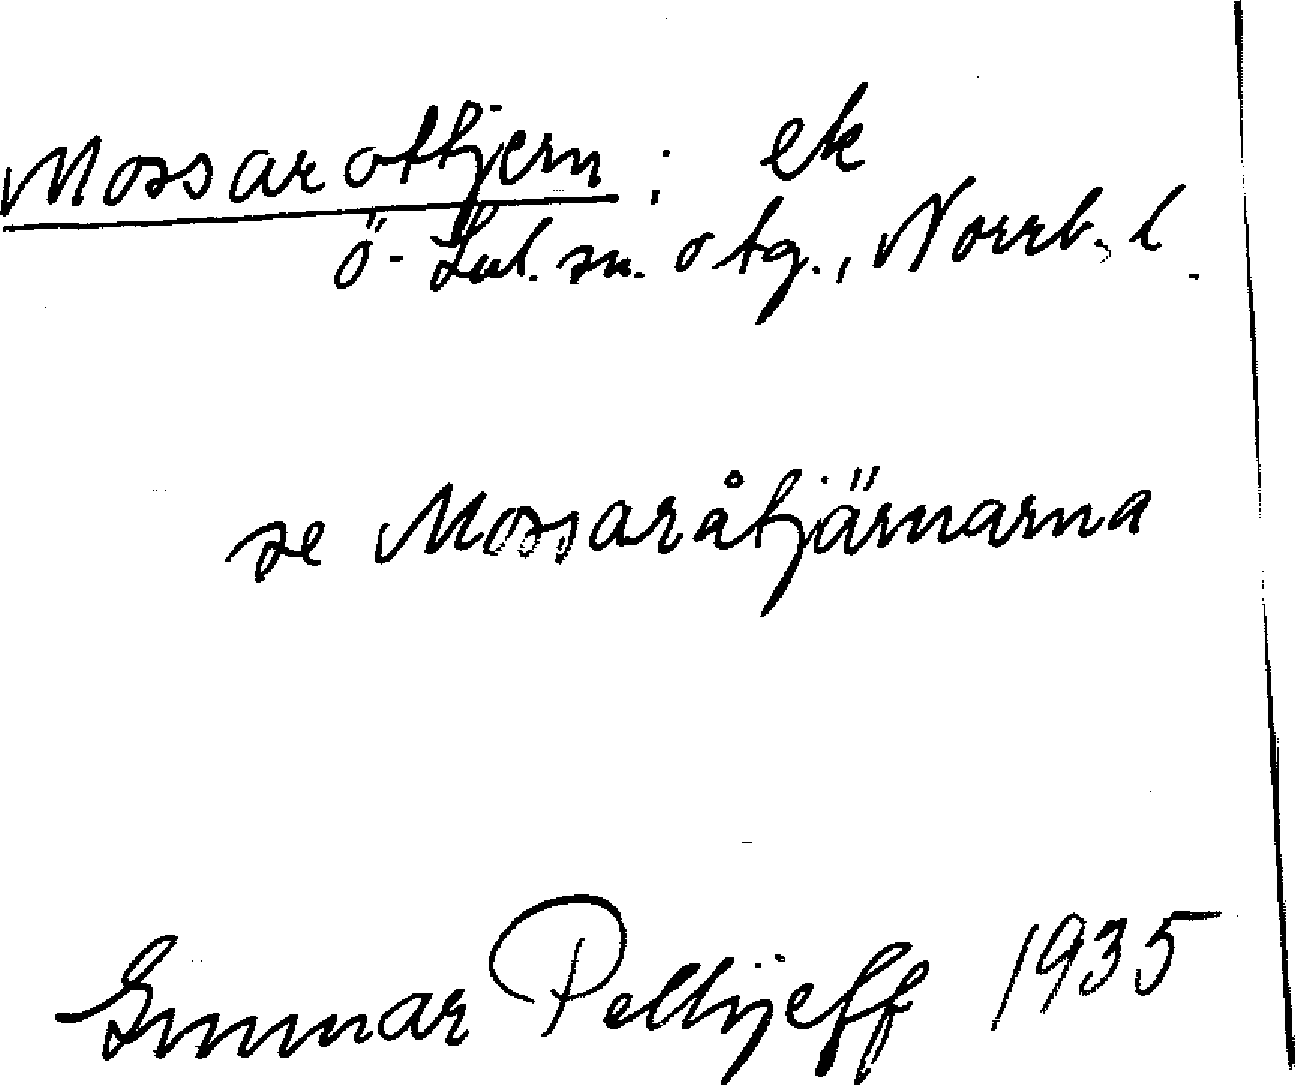 Mossarotjern; ek
Ö-Lul. sn. otg., Norrb. l.
se Mossaråtjärnarna
Gunnar Pellijeff 1935